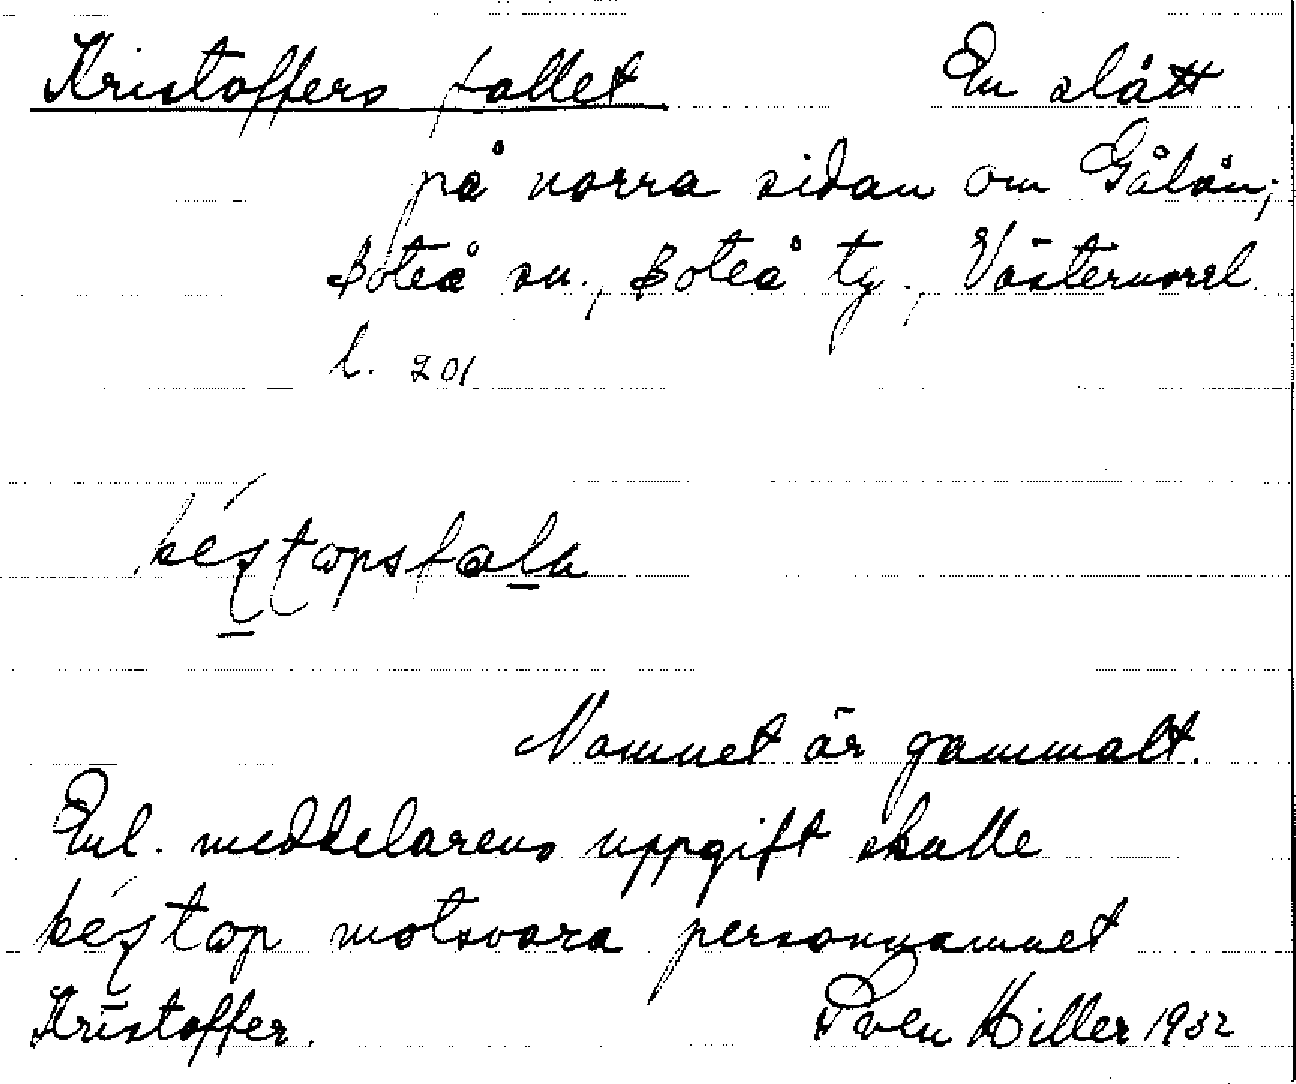 Kristoffers fallet En slått
på norra sidan om Gålån;
Boteå sn., Boteå tg., Västernorrl.
l. 201
Namnet är gammalt.
Enl. meddelarens uppgift skulle
motsvara personnamnet
Kristoffer. Sven Hiller 1932